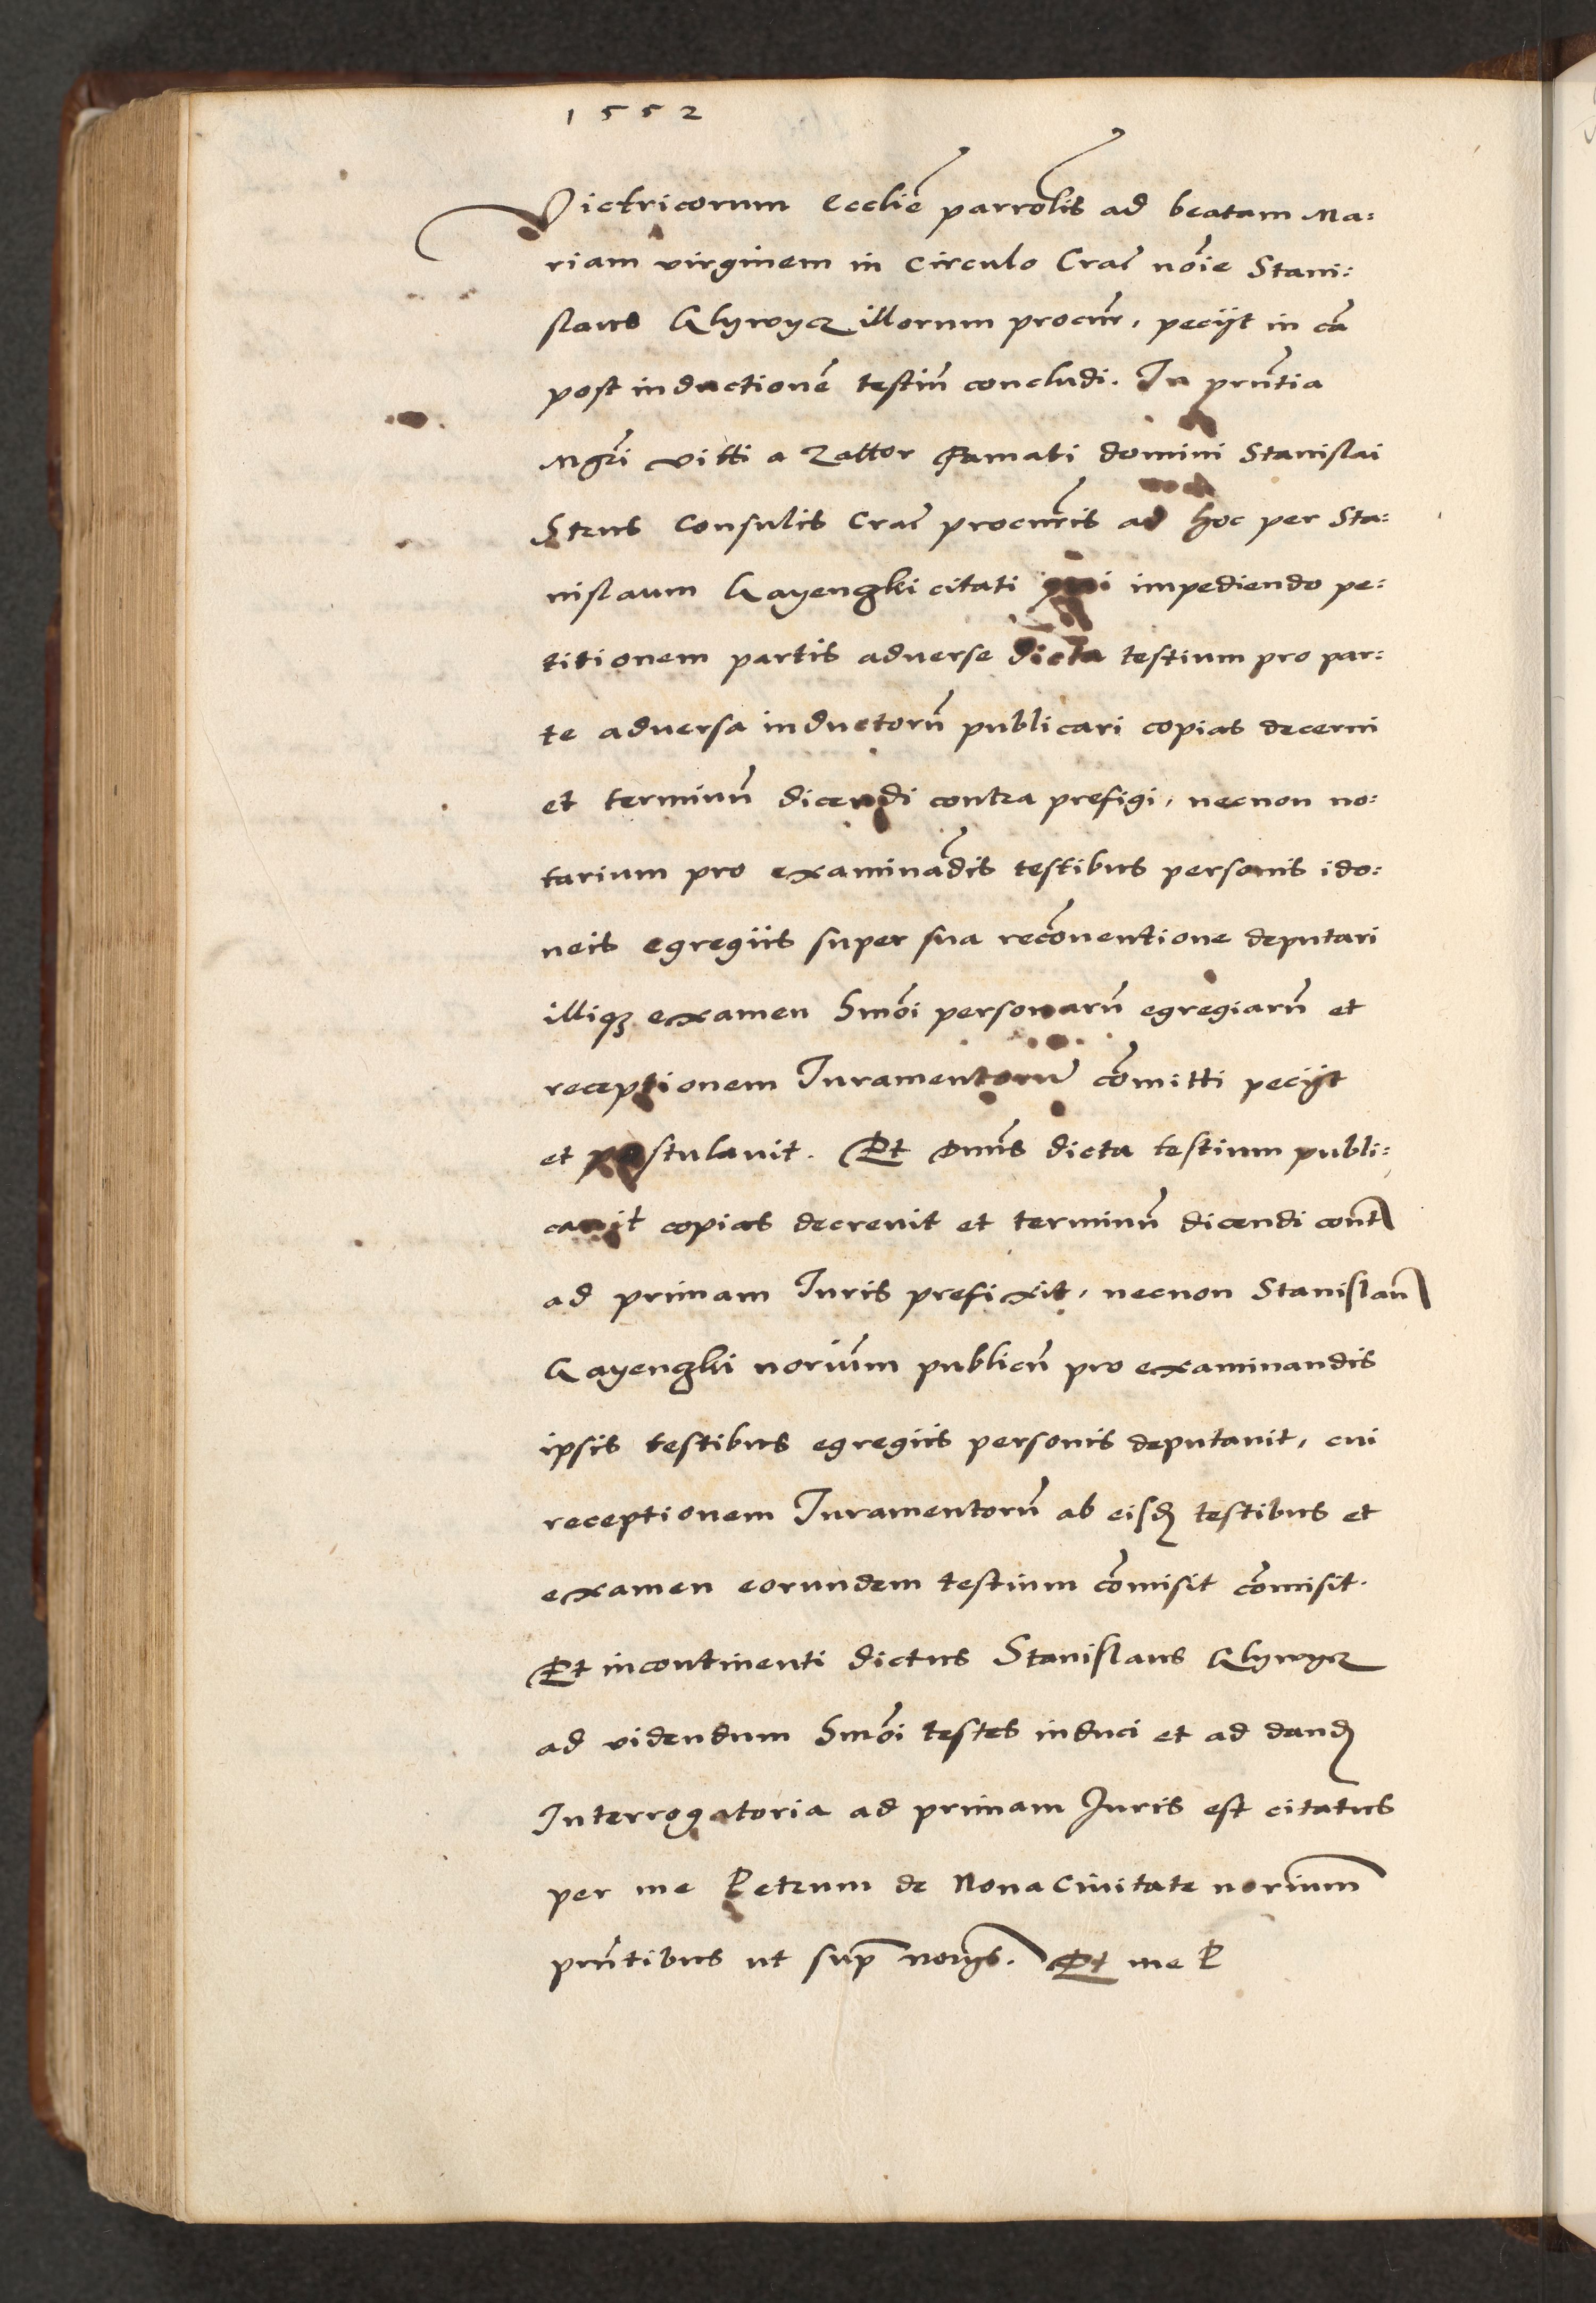 1552
Victricorum Ecclie parrolis ad beatam Ma:
riam virginem in Circulo Crac noie Stani:
slaus Glywycz illorum procur, peciit in ca
post inductione testiu concludi. In prntia
Mgri Vitti a Zattor Famati domini Stanislai
Strus Consulis Crac procuris ad hoc per Sta:
nislaum Gayengki citati qui impediendo pe:
titionem partis adverse dicta testium pro par:
te adversa inductoru publicari copias decerni
et terminu dicendi contra prefigi, necnon no:
tarium pro examinadis testibus personis ido:
neis egregiis super sua recoventione deputari
illiqz examen hmoi personaru egregiaru et
receptionem Iuramentoru comitti peciit
et postulavit. Et Dnus dicta testium publi:
cavit copias decrevit et terminu dicendi cont
ad primam Iuris prefixit, necnon Stanislau
Gayengki norium publicu pro examinandis
ipsis testibus egregiis personis deputavit, cui
receptionem Iuramentoru ab eisd testibus et
examen eorundem testium comisit comisit.
Et incontinenti dictus Stanislaus Glywycz
ad videndum hmoi testes induci et ad dand
Interrogatoria ad primam Iuris est citatus
per me Petrum de Nova Civitate norium
prntibus ut sup norys. Et me P